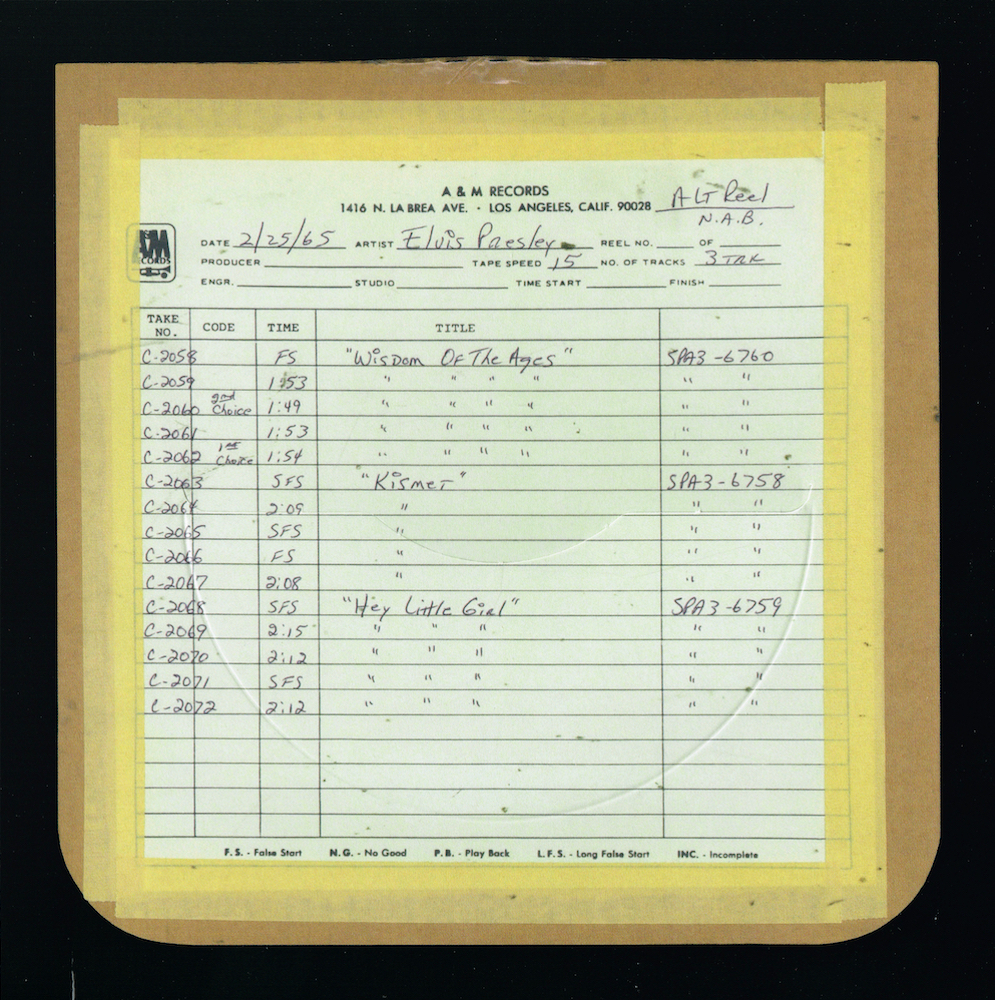 A & M RECORDS
1416 N. LA BREA AVE. · LOS ANGELES, CALIF. 90028 ALT Reel
N.A.B.
A&M RECORDS
DATE 2/25/65 ARTIST Elvis Presley REEL NO. OF
PRODUCER TAPE SPEED 15 NO. OF TRACKS 3 TRK
ENGR. STUDIO TIME START FINISH
TAKE NO. CODE TIME TITLE
C-2058 FS "Wisdom Of The Ages" SPA3-6760
C-2059 1:53 " " " " " "
C-2060 2nd Choice 1:49 " " " " " "
C-2061 1:53 " " " " " "
C-2062 1st Choice 1:54 " " " " " "
C-2063 SFS "Kismet" SPA3-6758
C-2064 2:09 " " "
C-2065 SFS " " "
C-2066 FS " " "
C-2067 2:08 " " "
C-2068 SFS "Hey Little Girl" SPA3-6759
C-2069 2:15 " " " " "
C-2070 2:12 " " " " "
C-2071 SFS " " " " "
C-2072 2:12 " " " " "
F.S. - False Start N.G. - No Good P.B. - Play Back L.F.S. - Long False Start INC. - Incomplete